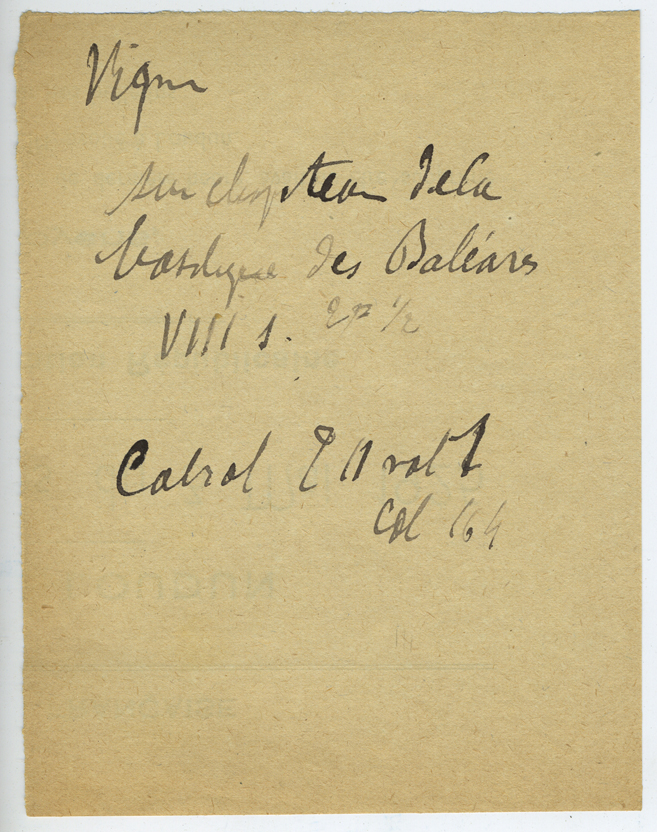 Vigne
sur chapiteau de la
basilique des Baléares
VIII s. 2e 1/2
Cabrol T II vol 1
col 164